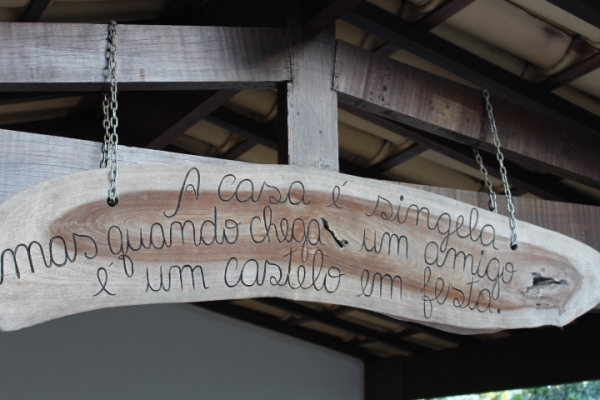 A casa é singela
mas quando chega um amigo
é um castelo em festa.